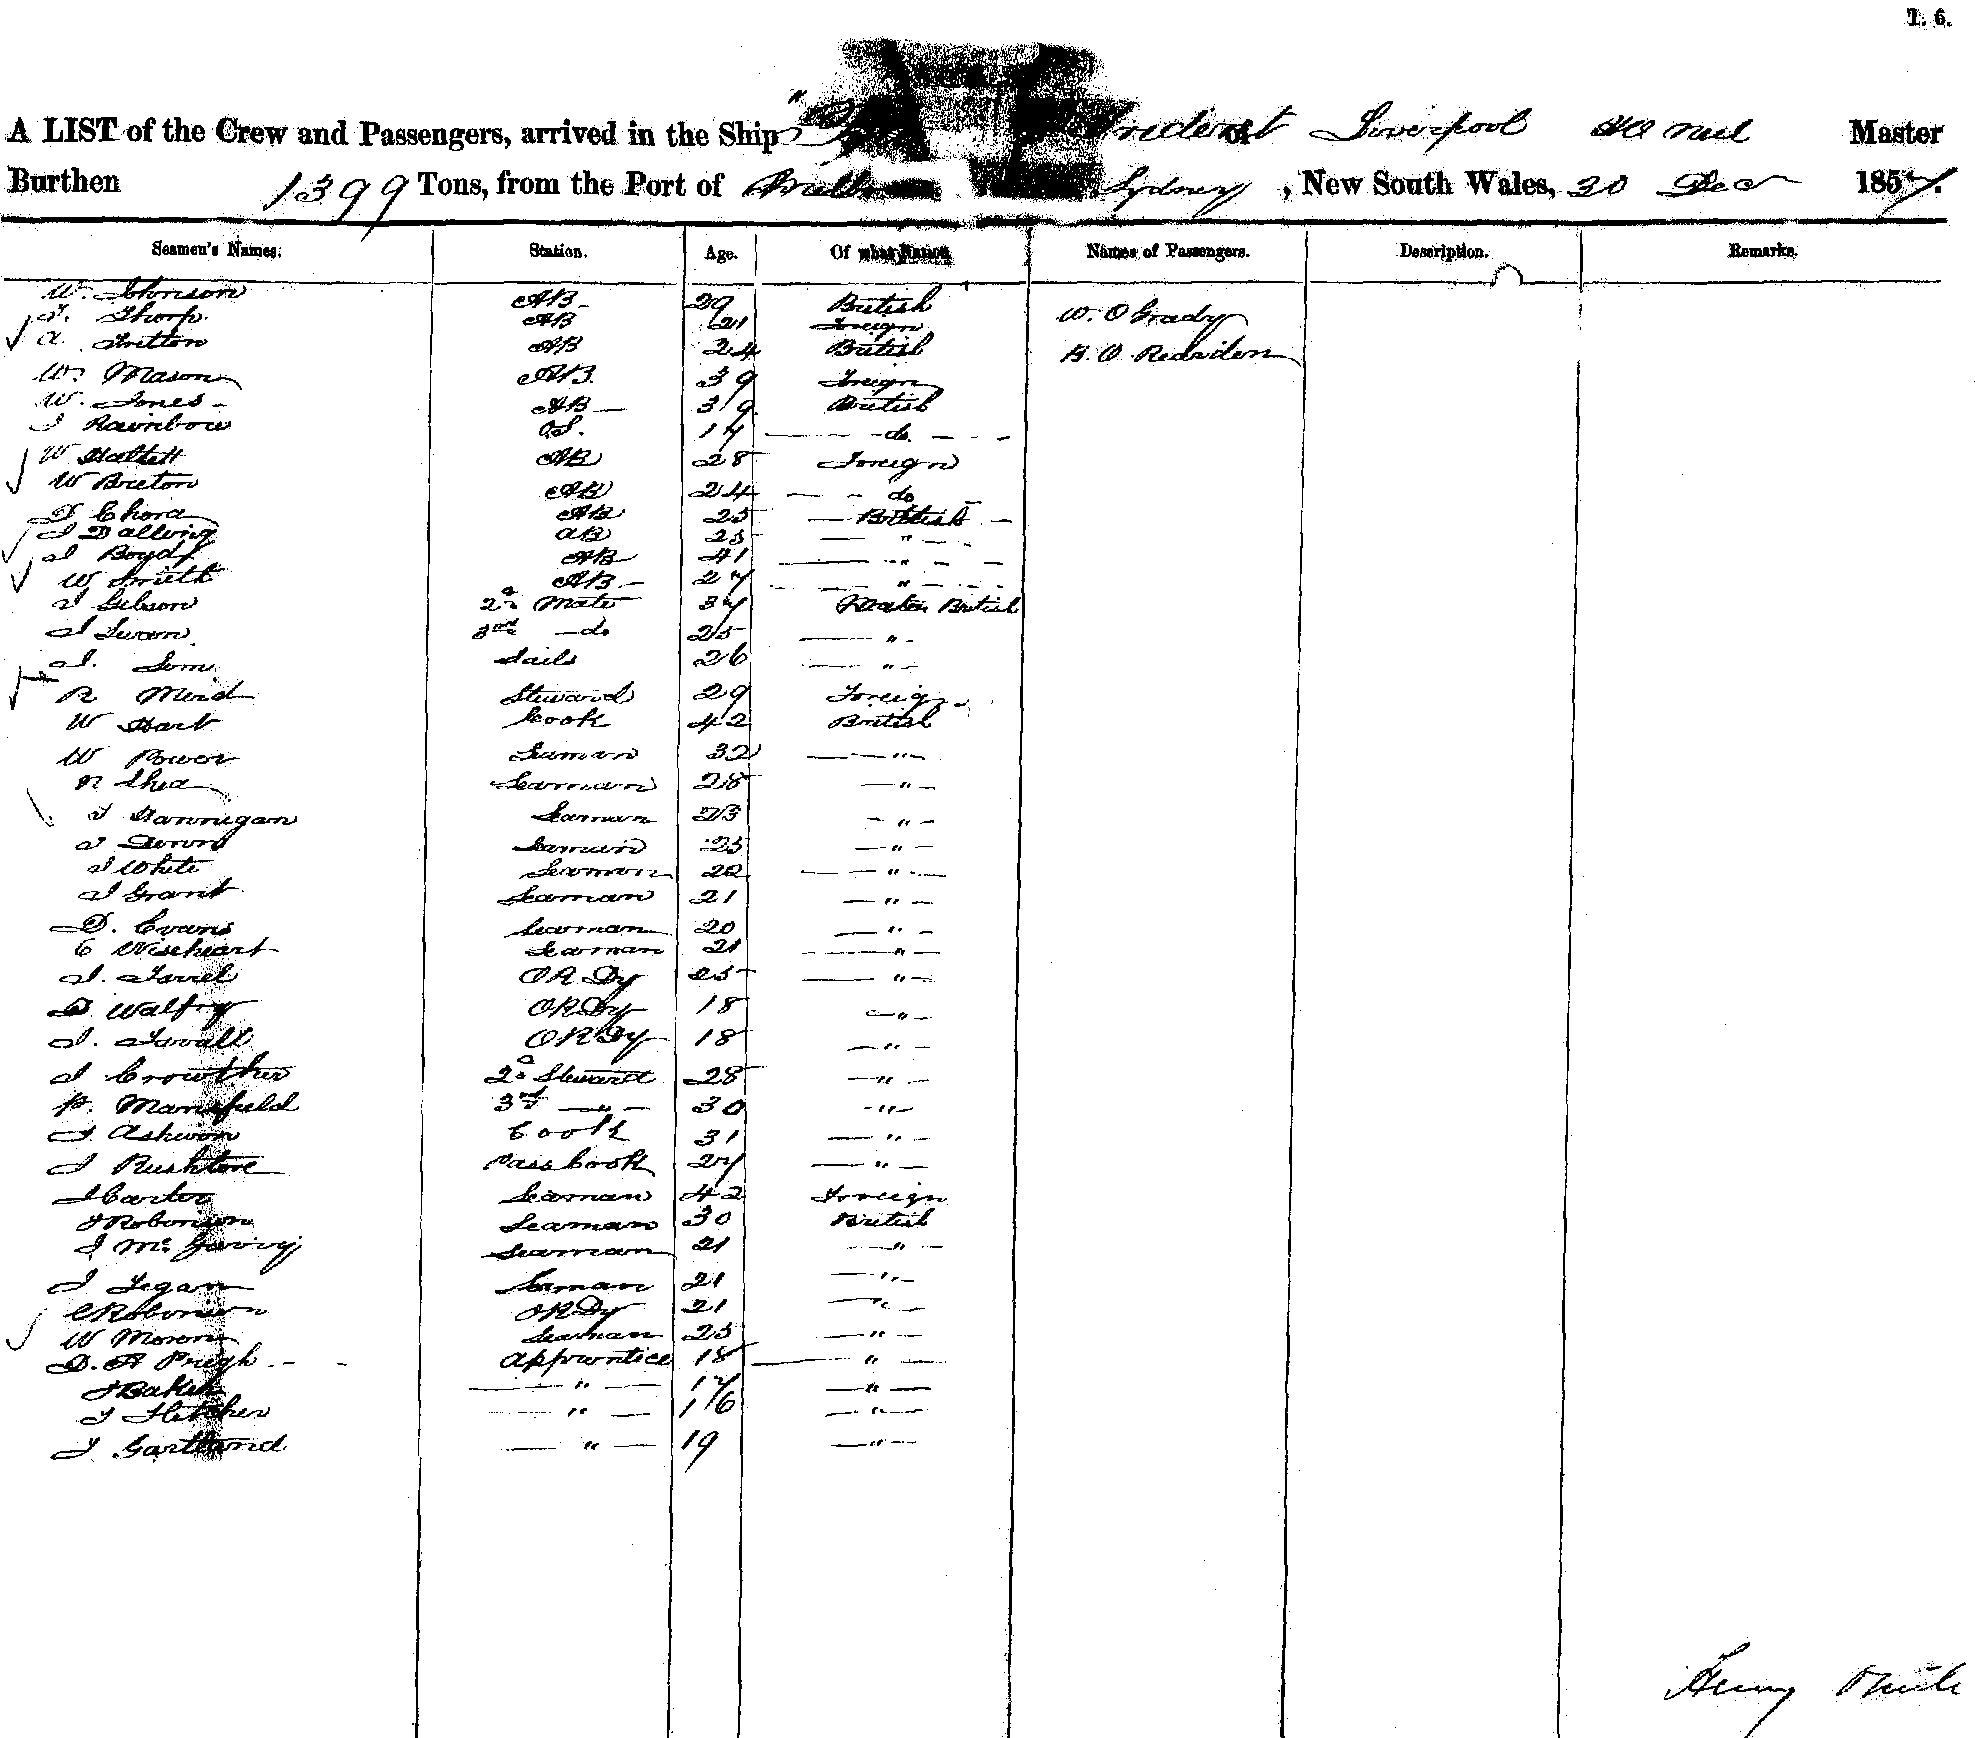 T. 6.
A LIST of the Crew and Passengers, arrived in the Ship " of Liverpool Master
Burthen 1399 Tons, from the Port of Sydney, New South Wales, 30 Dec 1857.
Seamen's Names. Station. Age. Of what Nation. Names of Passengers. Description. Remarks.
W. Johnson AB 29 British
T. Thorp AB 21 Foreign W. O Grady
A. Fritton AB 24 British B. O Reardon
W. Mason AB 39 Foreign
W. Jones AB 39 British
J Rainbow OS. 17 do
W Hallett AB 28 Foreign
W Breton AB 24 do
AB 25 British
J AB 25 "
J Boyd AB 41 "
W Smith AB 27 "
J Gibson 2d Mate 37 British
J Swan 3rd do 25 "
J. Sails 26 "
R Steward 29 Foreign
W Hart Cook 42 British
W Power Seaman 32 "
Shea Seaman 28 "
J Hannigan Seaman 23 "
J Seaman 25 "
J White Seaman 22 "
J Grant Seaman 21 "
D. Evans Seaman 20 "
C Wiseheart Seaman 21 "
J. ORDy 25 "
D ORDy 18 "
J. ORDy 18 "
J Crowther 2d Steward 28 "
P. Mansfield 3rd " 30 "
J Ashworn Cook 31 "
J Rushtone Pass Cook 27 "
J Carter Seaman 42 Foreign
J Robinson Seaman 30 British
J Mc Seaman 21 "
J Fegan Seaman 21 "
C Robinson ORDy 21 "
W Moron Seaman 25 "
D. A Pugh Apprentice 18 "
J Baker " 17 "
J Fletcher " 16 "
J Gartland " 19 "
Henry